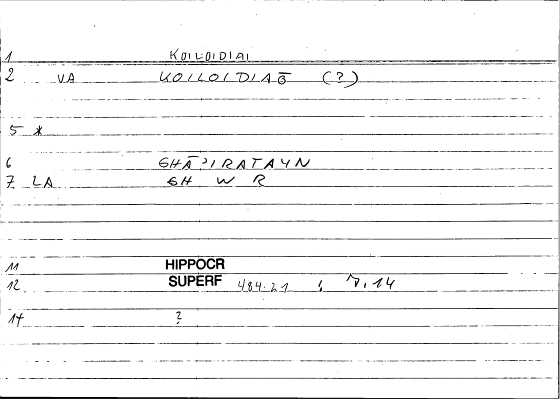 1 KOILOIDIAI
2 VA KOILOIDIAS̄ (?)
5 *
6 GHĀ'IRATAYN
7. LA GH W R
11 HIPPOCR
12 SUPERF 484.21 ; 7.14
14 ?